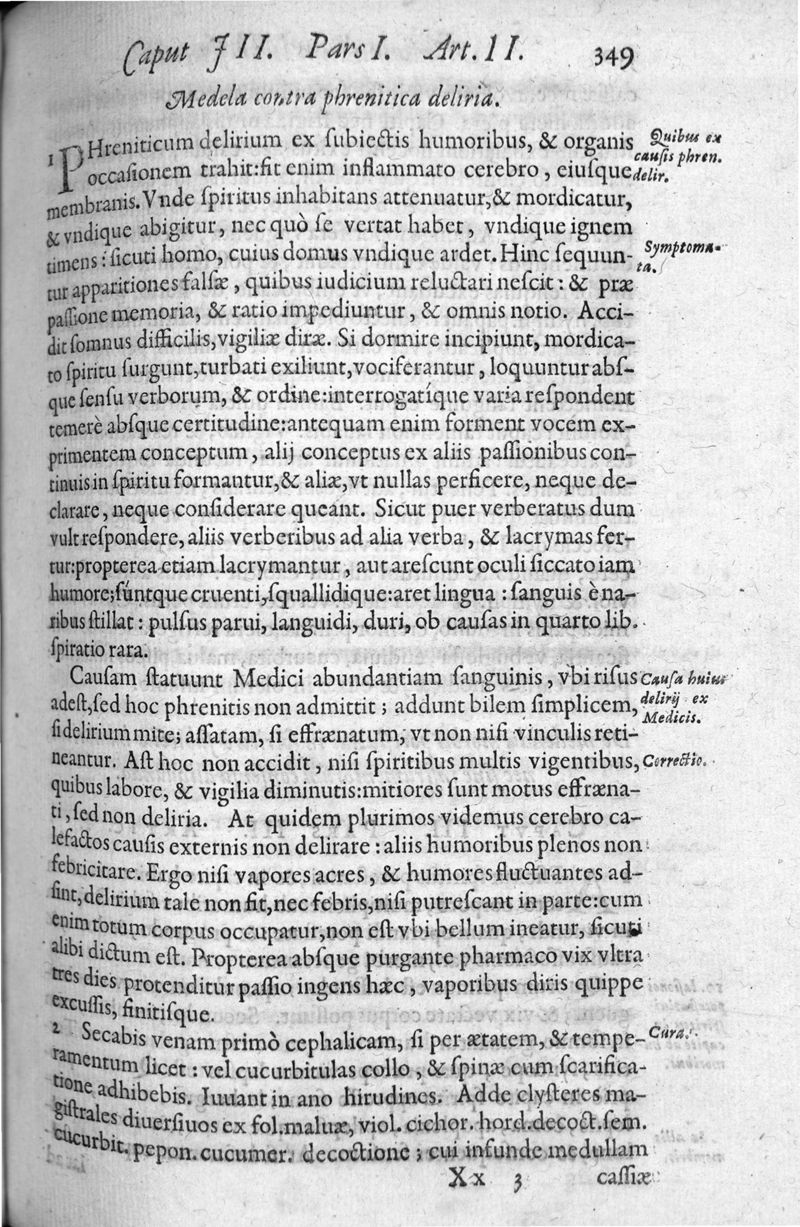 Caput III. Pars I. Art. II. 349
Medela contra phrenitica deliria.
1 PHreniticum delirium ex ſubiectis humoribus, & organis
occaſionem trahit:fit enim inflammato cerebro, eiuſque
Quibus ex
cauſis phren.
delir.
membranis. Vnde ſpiritus inhabitans attenuatur, & mordicatur,
& vndique abigitur, nec quò ſe vertat habet, vndique ignem
timens: ſicuti homo, cuius domus vndique ardet. Hinc ſequun-
Symptoma-
ta.
tur apparitiones falſæ, quibus iudicium reluctari neſcit: & præ
paſſione memoria, & ratio impediuntur, & omnis notio. Acci-
dit ſomnus difficilis, vigiliæ diræ. Si dormire incipiunt, mordica-
to ſpiritu ſurgunt, turbati exiliunt, vociferantur, loquuntur abſ-
que ſenſu verborum, & ordine: interrogatíque varia reſpondent
temerè abſque certitudine: antequam enim forment vocem ex-
primentem conceptum, alij conceptus ex aliis paſſionibus con-
tinuis in ſpiritu formantur, & aliæ, vt nullas perficere, neque de-
clarare, neque conſiderare queant. Sicut puer verberatus dum
vult reſpondere, aliis verberibus ad alia verba, & lacrymas fer-
tur: propterea etiam lacrymantur, aut areſcunt oculi ſiccato iam
humore; ſúntque cruenti, ſquallidique: aret lingua: ſanguis è na-
ribus ſtillat: pulſus parui, languidi, duri, ob cauſas in quarto lib.
ſpiratio rara.
Cauſam ſtatuunt Medici abundantiam ſanguinis, vbi riſus
Cauſa huius
delirij ex
Medicis.
adeſt, ſed hoc phrenitis non admittit; addunt bilem ſimplicem,
ſi delirium mite; aſſatam, ſi effrænatum, vt non niſi vinculis reti-
neantur. Aſt hoc non accidit, niſi ſpiritibus multis vigentibus,
Correctio.
quibus labore, & vigilia diminutis: mitiores ſunt motus effræna-
ti, ſed non deliria. At quidem plurimos videmus cerebro ca-
lefactos cauſis externis non delirare: aliis humoribus plenos non
febricitare. Ergo niſi vapores acres, & humores fluctuantes ad-
ſint, delirium tale non fit, nec febris, niſi putreſcant in parte: cum
enim totum corpus occupatur, non eſt vbi bellum ineatur, ſicuti
alibi dictum eſt. Propterea abſque purgante pharmaco vix vltra
tres dies protenditur paſſio ingens hæc, vaporibus diris quippe
excuſſis, finitiſque.
2 Secabis venam primò cephalicam, ſi per ætatem, & tempe-
Cura.
ramentum licet: vel cucurbitulas collo, & ſpinæ cum ſcarifica-
tione adhibebis. Iuuant in ano hirudines. Adde clyſteres ma-
giſtrales diuerſiuos ex fol. maluæ, viol. cichor. hord. decoct. ſem.
cucurbit. pepon. cucumer. decoctione; cui infunde medullam
Xx 3 caſſiæ